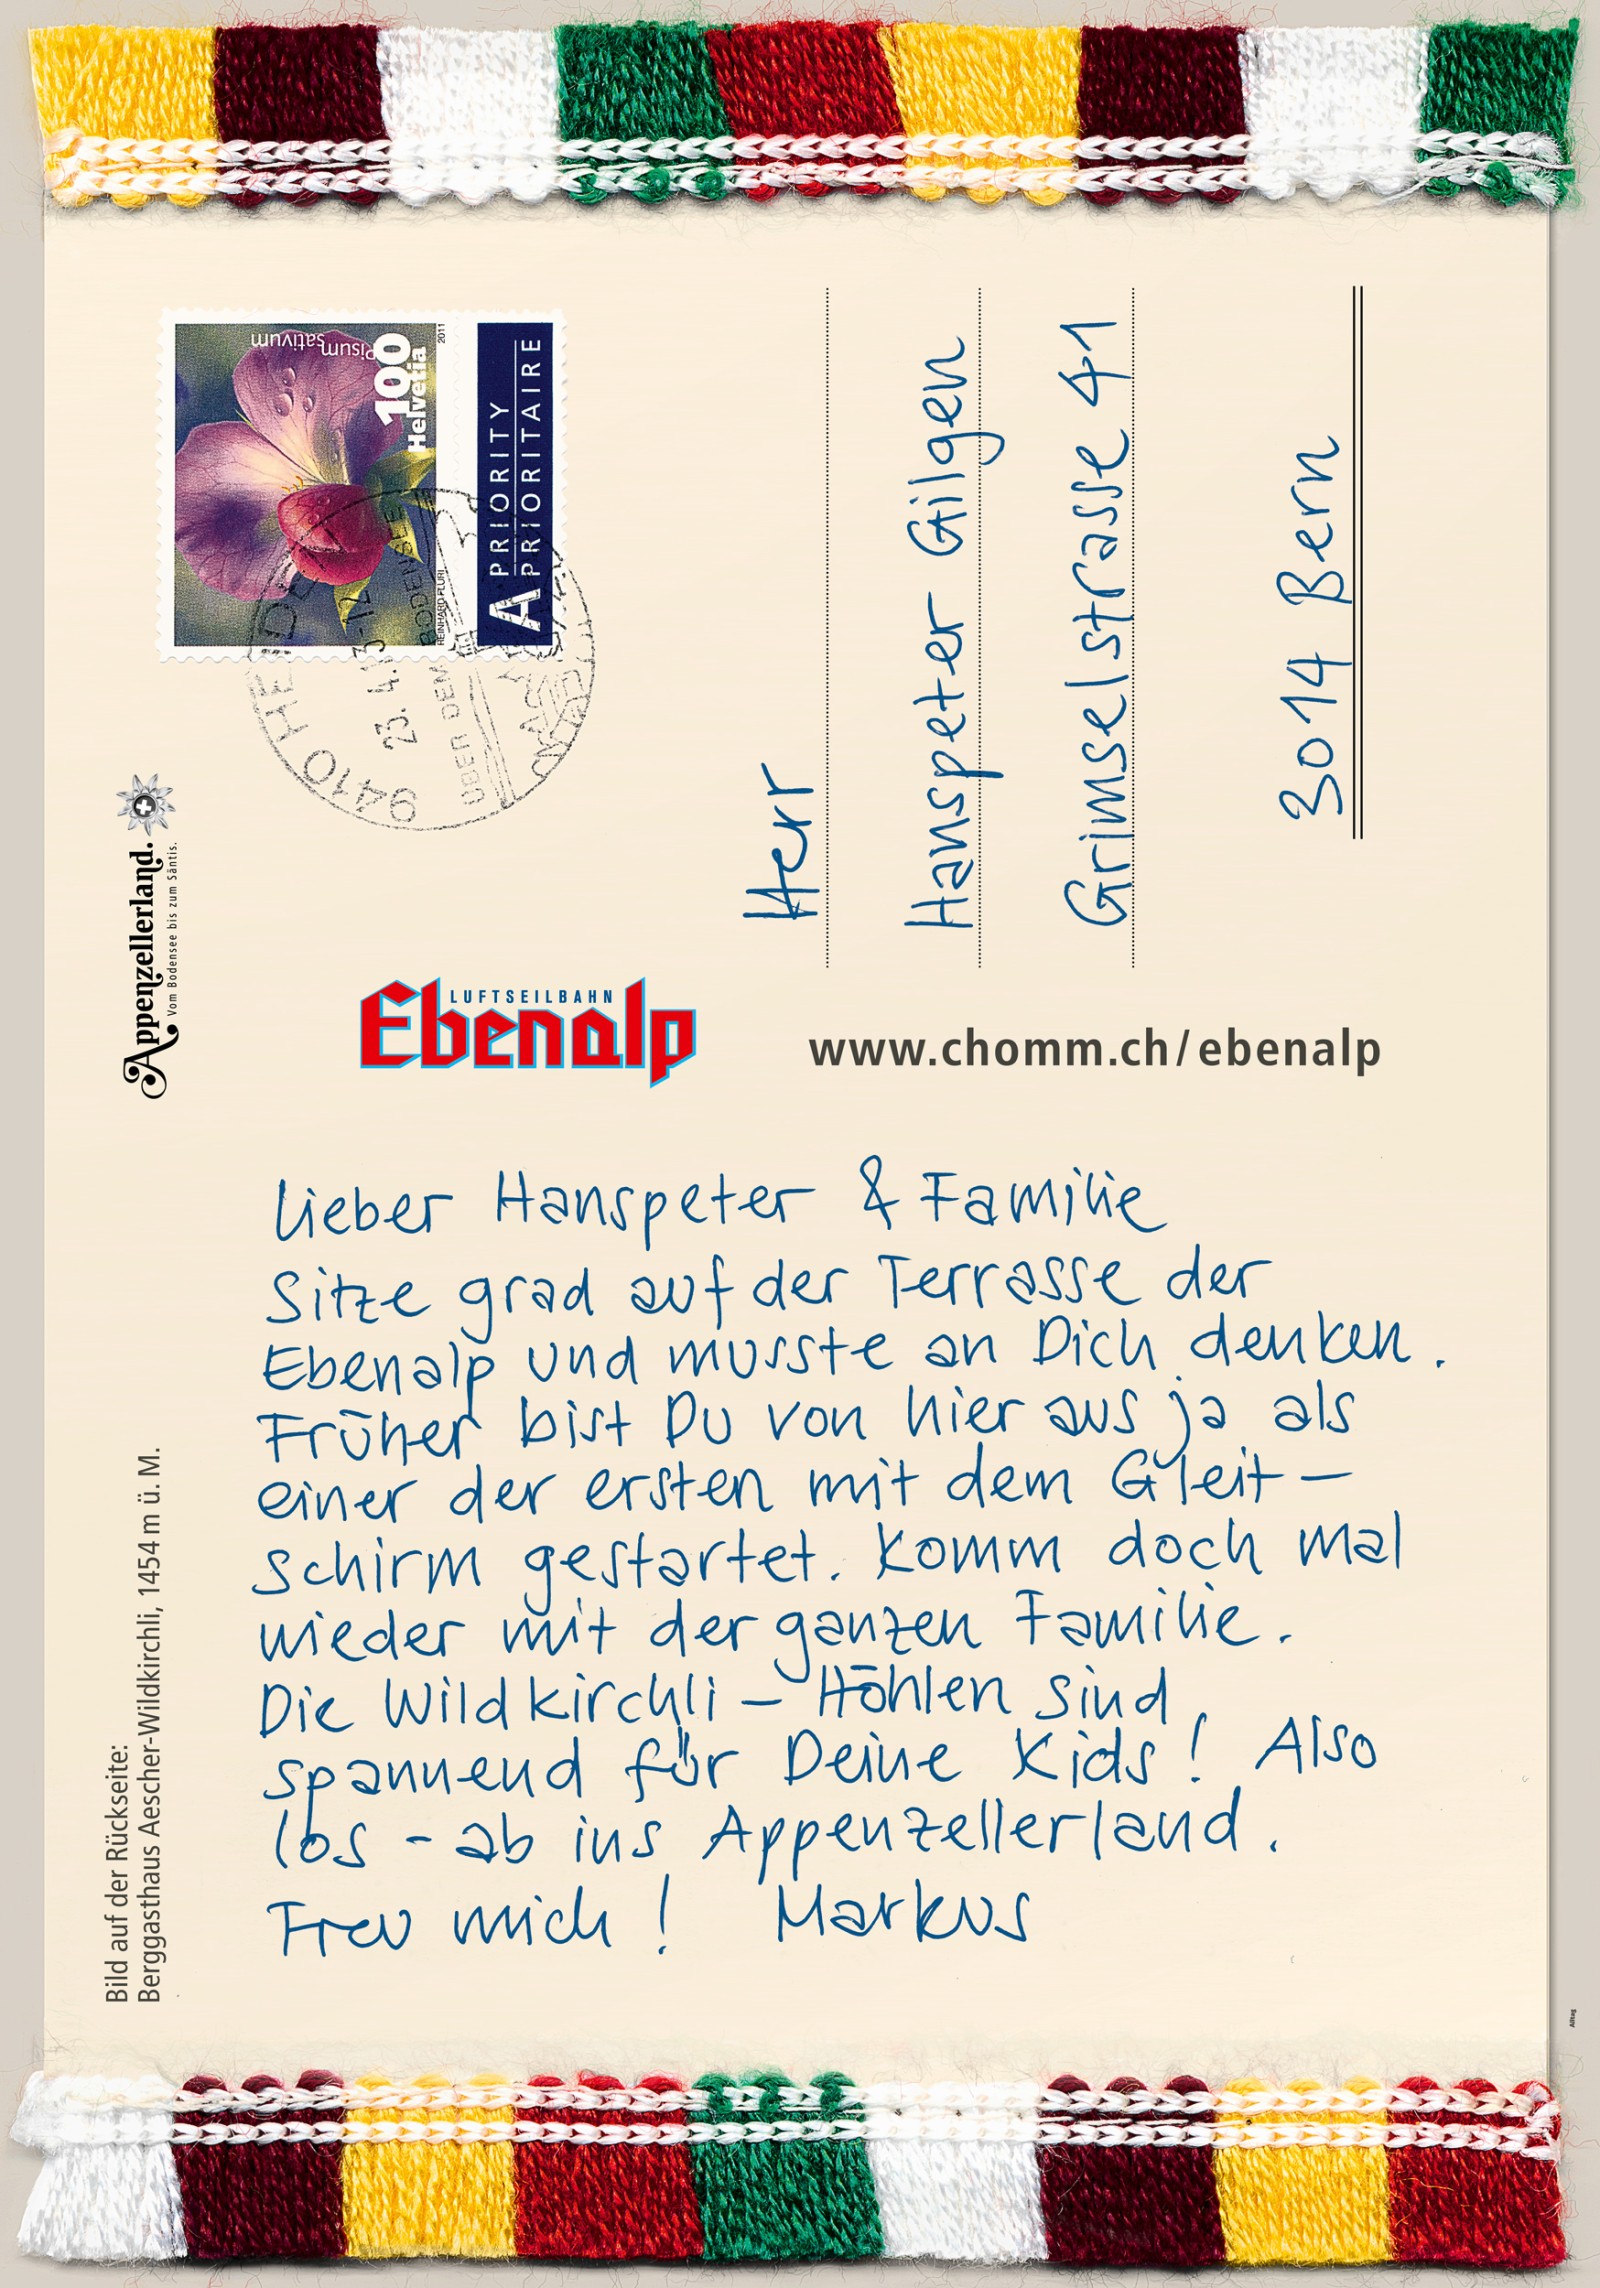 Pisum
sativum
100
Helvetia
2011
REINHARD FLURI
A PRIORITY
PRIORITAIRE
9410 HEIDEN
23. 4.13-12
ÜBER DEM BODENSEE
Appenzellerland.
Vom Bodensee bis zum Säntis.
Herr
Hanspeter Gilgen
Grimselstrasse 41
3014 Bern
LUFTSEILBAHN
Ebenalp
www.chomm.ch/ebenalp
Lieber Hanspeter & Familie
Sitze grad auf der Terrasse der
Ebenalp und musste an Dich denken.
Früher bist Du von hier aus ja als
einer der ersten mit dem Gleit-
schirm gestartet. Komm doch mal
wieder mit der ganzen Familie.
Die Wildkirchli-Höhlen sind
spannend für Deine Kids! Also
los - ab ins Appenzellerland.
Freu mich! Markus
Bild auf der Rückseite:
Berggasthaus Aescher-Wildkirchli, 1454 m ü. M.
Alltag